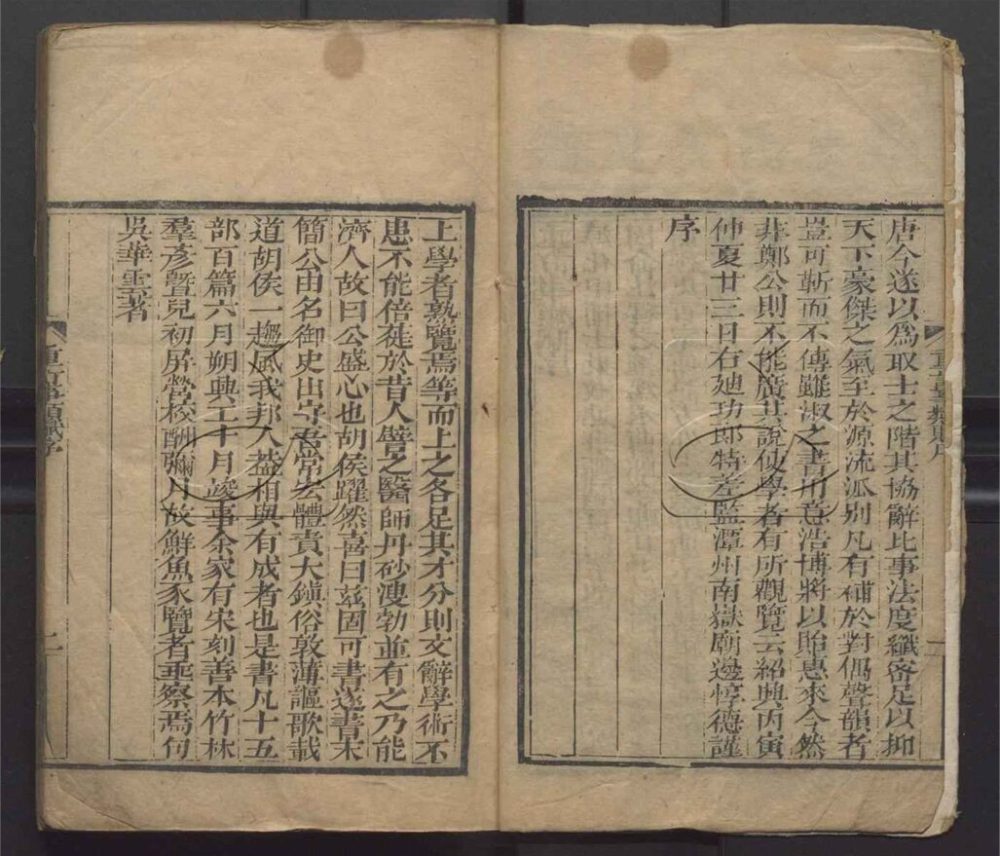 唐今遂以爲取士之階其協辭比事法度纖密足以抑
天下豪傑之氣至於源流派别凡有補於對偶聲韻者
豈可靳而不傳雖淑之書用意浩博將以貽惠來今然
非鄭公則不能廣其說使學者有所觀覽云紹興丙寅
仲夏廿三日右廸功郎特差監潭州南嶽廟邊惇德謹
序
上學者熟覽焉等而上之各足其才分則文辭學術不
患不能倍蓰於昔人譬之醫師丹砂溲勃並有之乃能
濟人故曰公盛心也胡侯躍然喜曰茲固可書遂書末
簡公由名御史出守吾常宏體責大鎮俗敦薄謳歌載
道胡侯一趨風我邦人葢相與有成者也是書凡十五
部百篇六月朔興工十月竣事余家有宋刻善本竹林
羣彥曁兒初屏營校酬彌月故鮮魚豕覽者垂察焉句
吳華雲著